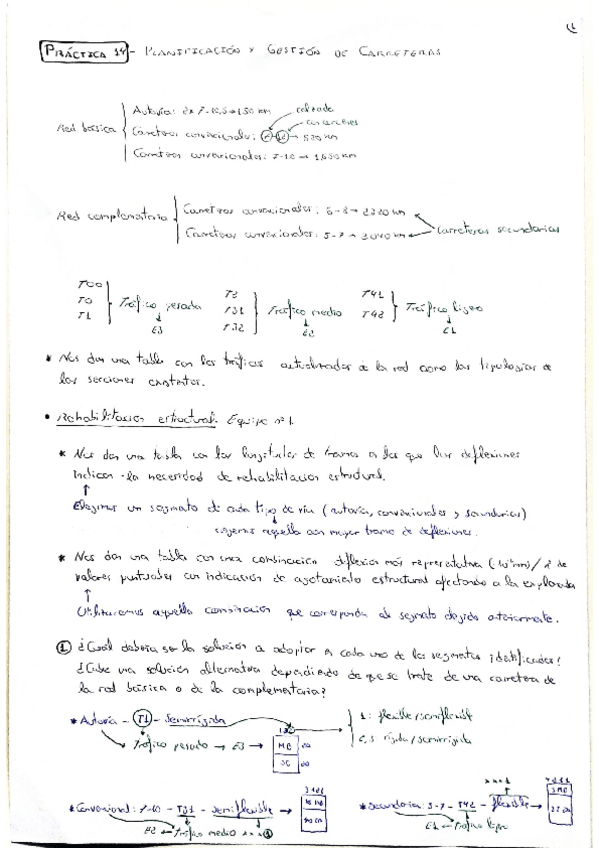 (1
PRÁCTICA 14 - PLANIFICACIÓN Y GESTIÓN DE CARRETERAS
Red básica
Autovía: 2x 7-10,5 → 150 km
calzada
Carretera convencionales: 7-10 → 530 km
Carretera convencionales: 7-10 → 1,650 km
Red complementaria
Carreteras convencionales: 6-8 → 2320 km
Carreteras convencionales: 5-7 → 3040 km
carreteras secundarias
T00
T0
T1
Tráfico pesado
E3
T2
T31
T32
Tráfico medio
E2
T41
T42
Tráfico ligero
E1
* Nos dan una tabla con los tráficos actualizados de la red como las tipologías de
las secciones existentes.
• Rehabilitación estructural. Equipo nº1.
* Nos dan una tabla con las longitudes de tramos a los que las deflexiones
indican la necesidad de rehabilitación estructural.
Elegimos un segmento de cada tipo de vía (autovía, convencionales y secundarias)
cogemos aquella con mayor tramo de deflexiones.
* Nos dan una tabla con una combinación deflexión más representativa / % de
valores puntuales con indicación de agotamiento estructural afectando a la explanada
Utilizaremos aquella combinación que corresponda al segmento elegido anteriormente.
1 ¿Cuál debería ser la solución a adoptar en cada uno de los segmentos identificados?
¿Cabe una solución alternativa dependiendo de que se trate de una carretera de
la red básica o de la complementaria?
* Autovía - T1 - semirrígida
Tráfico pesado → E3 →
MB
SC
1: flexible/semiflexible
rígida/semirrígida
* Convencional: 7-10 - T31 - semiflexible →
E2 ← Tráfico medio xx1
* Secundaria: 5-7 - T42 - flexible →
xx1
E1 ← Tráfico ligero